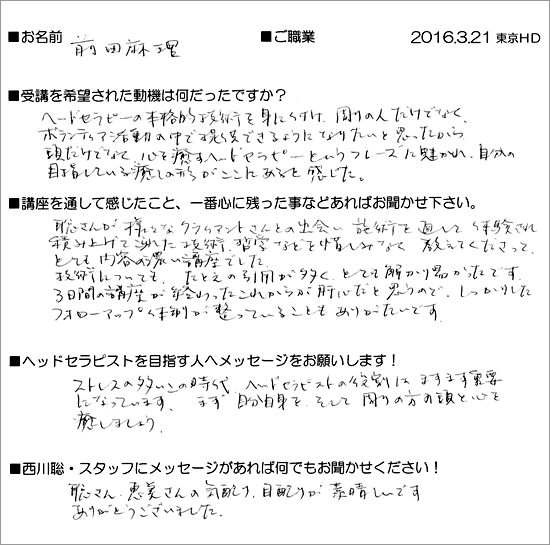 ■お名前 前田麻理 ■ご職業 2016.3.21 東京HD
■受講を希望された動機は何だったですか？
ヘッドセラピーの本格的技術を身につけ、周りの人だけでなく、
ボランティア活動の中で提供できるようになりたいと思ったから
頭だけでなく、心を癒すヘッドセラピーというフレーズに魅かれ、自分の
目指している癒しの形がここにあると感じた。
■講座を通して感じたこと、一番心に残った事などあればお聞かせ下さい。
聡さんが様々なクライアントさんとの出会い 施術を通して体験され
積み上げて来れた技術、習学などを惜しみなく教えてくださって、
とても内容の濃い講座でした。
技術についても、たとえの引用が多く、とても解かり易かったです
3日間の講座が終わったこれからが肝心だと思うので、しっかりした
フォローアップ体制が整っていることもありがたいです。
■ヘッドセラピストを目指す人へメッセージをお願いします！
ストレスの多いこの時代、ヘッドセラピストの役割はますます重要
になっています。まず自分自身を、そして周りの方の頭と心を
癒しましょう。
■西川聡・スタッフにメッセージがあれば何でもお聞かせください！
聡さん、恵美さんの気配り、目配りが素晴しいです
ありがとうございました。